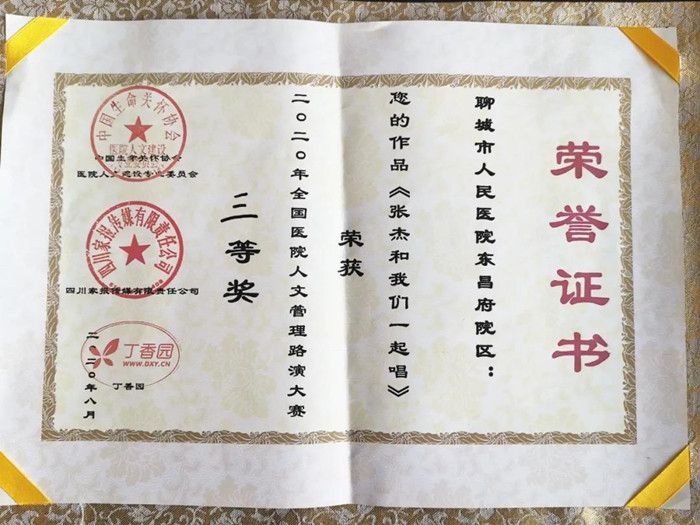 荣誉证书
聊城市人民医院东昌府院区：
您的作品《张杰和我们一起唱》
荣获
二〇二〇年全国医院人文管理路演大赛
三等奖
中国生命关怀协会
医院人文建设
专业委员会
中国生命关怀协会
医院人文建设专业委员会
四川家报传媒有限责任公司
四川家报传媒有限责任公司
丁香园
WWW.DXY.CN
丁香园
二〇二〇年八月